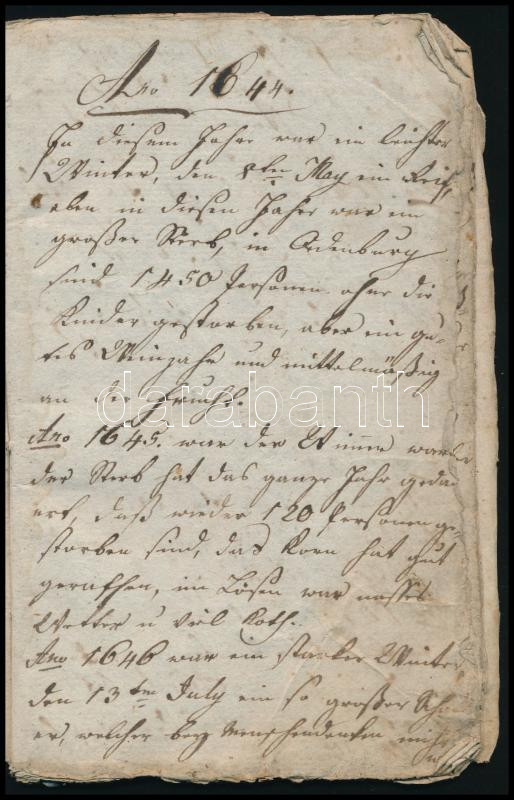 Ano 1644.
In diesem Jahr war ein leichter
Winter, den 8ten May ein Reif,
eben in diesen Jahr war ein
großer Sterb, in Ödenburg
sind 1450 Personen ohne die
Kinder gestorben, aber ein gu-
tes Weinjahr und mittelmäßig
an der Frucht.
darabanth
Ano 1645. war der Winter warm
der Sterb hat das ganze Jahr gedau
ert, daß wieder 120 Personen ge-
storben sind, das Korn hat gut
gerathen, im Lösen war nasses
Wetter u viel Koth.
Ano 1646 war ein starker Winter
den 13ten July ein so großer
er, welcher bey Menschendenken